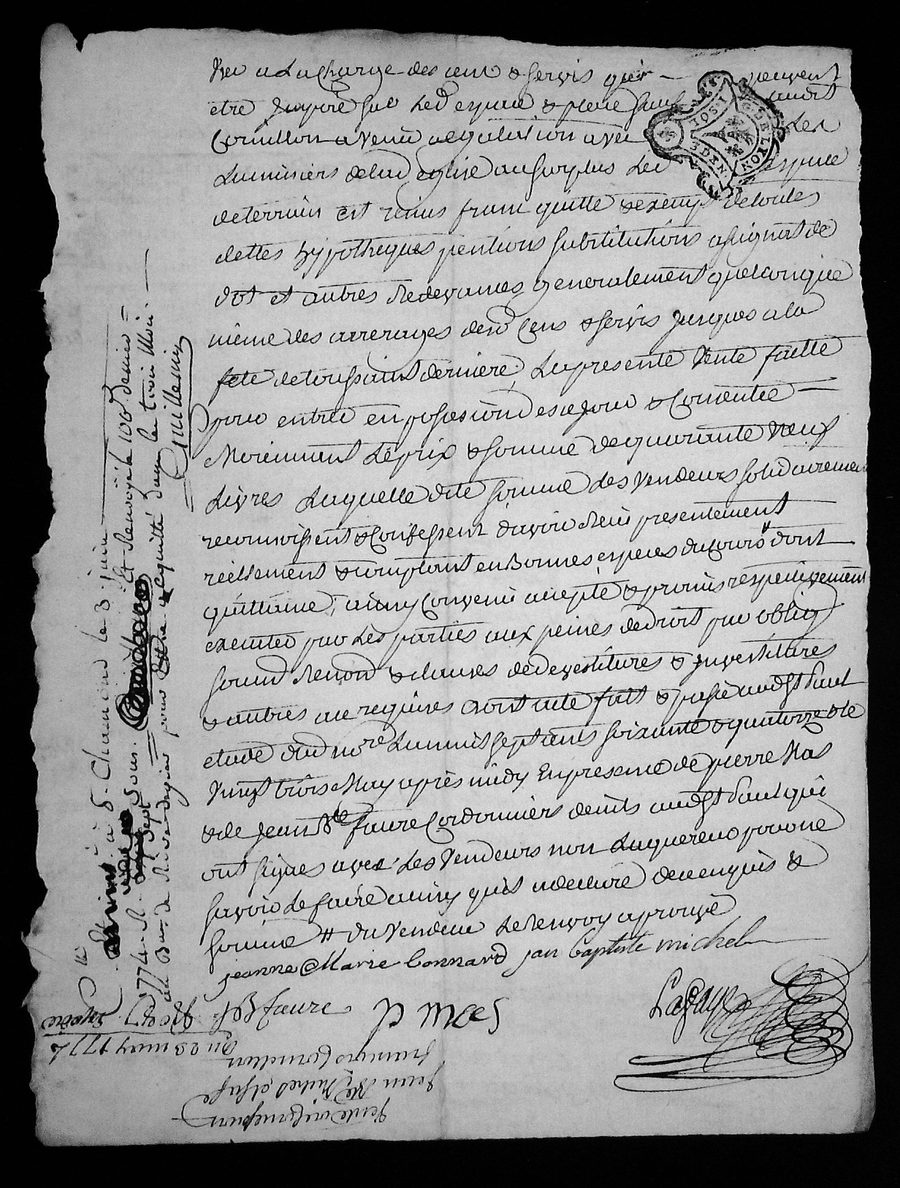 a La charge des cens & servis qui peuvent
etre imposé sur Led espace & place sauf aud
Cornillon a venir a egalation avec Les
Luminiers delad eglise au surplus Led espace
deterrain est venus franc quitte & exempt detoutes
dettes hypotheques pentions substitutions assignat de
dot et autres Redevances generalement quelconque
même des arrerages desd Cens & servis jusques a la
fete detoussaint derniere, La presente vente faitte
pour entrer en possession des ce jour & Consentie
Moiennant Le prix & somme de quarante neuf
Livres Laquelle dite somme Les Vendeurs solidairement
reconnoissent & Confessent d'avoir Reçu presentement
réellement & comptant en Bonnes especes du Cours dont
quittance, ainsy Convenu accepté & promis respectivement
executer par Les parties aux peines de droit par oblig
soumd Renond & clauses de devestitures & investitures
& autres au requises Dont acte fait & passé aud St Paul
etude dud nore L'an mil sept cens soixante & quatorze & le
vingt trois May après midy En presence de pierre Mas
& de Jean Bte faure Cordonniers de nts aud St Paul qui
ont signes avec Les Vendeurs non Laquereur pour ne
savoir Le faire ainsy qu'il a declaré de ce enquis &
sommé # du vendeur Le renvoy aprouvé
jeanne Marie Connard jan Baptiste michel
jB faure p mas Lafaye
à S. Chamond le 3 juin
1774 R. sept sous. Et Renvoyé le 100e denier
au Bau de Rivedegier pour Etre acquitté dans les trois Mois.
Guillemin
Du 23 may 1774
françois Cornillon
Jean Bte Michel & sa fe
Vente
I·SOL
G·DE·LYON